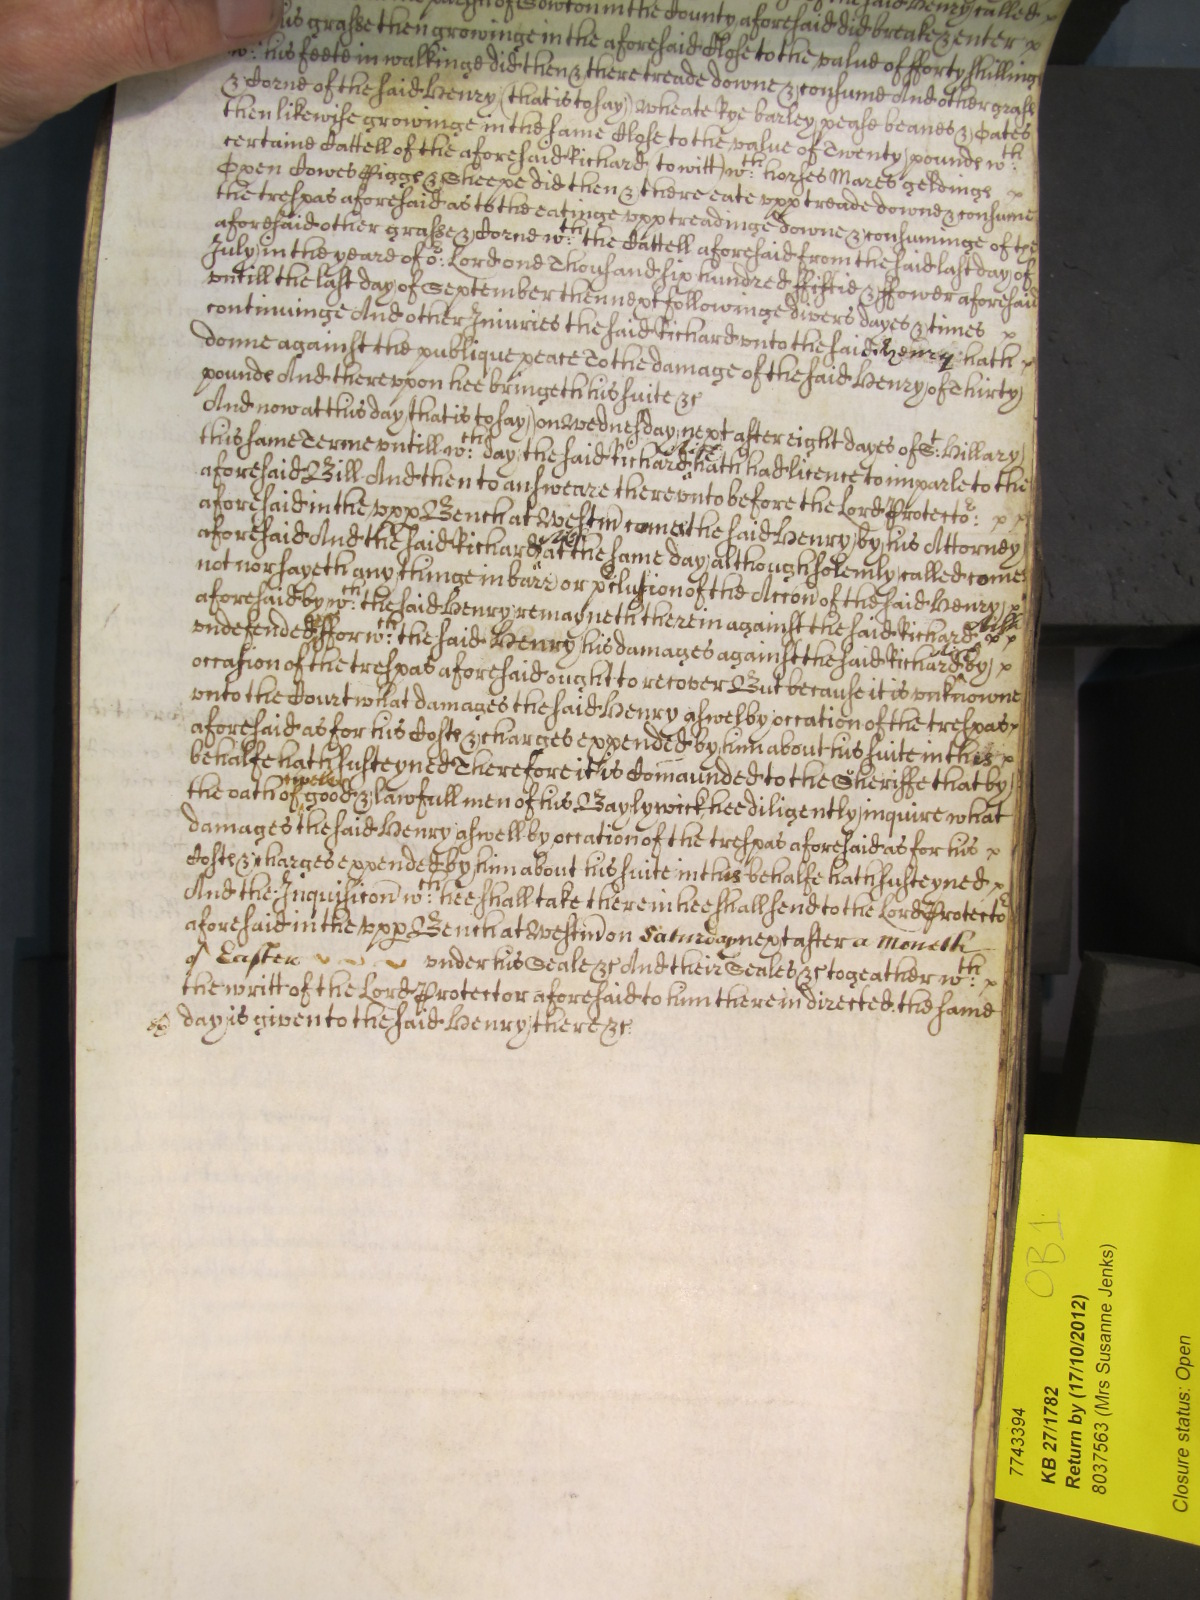 the parish of Sowton in the County aforesaid did breake & enter
his grasse then growinge in the aforesaid Close to the value of fforty shillings
wth: his feete in walkinge did then & there treade downe & consume And other grasse
& Corne of the said Henry (that is to say) Wheate Rye barley pease beanes & Oates
then likewise growinge in the same Close to the value of Twenty pounds wth:
certaine Cattell of the aforesaid Richard (to witt) wth: horses Mares geldings
Oxen Cowes Piggs & Sheepe did then & there eate upp treade downe & consume
the trespas aforesaid as to the eatinge upp treadinge downe & consuminge of the
aforesaid other grasse & Corne wth: the Cattell aforesaid from the said last day of
July in the yeare of or: Lord one Thousand six hundred ffiftie & ffower aforesaid
untill the last day of September then next followinge divers dayes & times
continuinge And other Injuries the said Richard unto the said Henry hath
donne against the publique peace To the damage of the said Henry of Thirty
pounds And thereuppon hee bringeth his suite &c
And now att this day (that is to say) on Wednesday next after eight dayes of St: Hillary
this same Terme untill wth: day the said Richard hath had licence to imparle to the
aforesaid Bill And then to answeare thereunto before the Lord Protector:
aforesaid in the upp Bench at Westm comes the said Henry by his Attorney
aforesaid And the said Richard at the same day although solemly called comes
not nor sayeth any thinge in barr or pclusion of the Accon of the said Henry
aforesaid by wth: the said Henry remayneth therein against the said Richard
undefended ffor wth: the said Henry his damages against the said Richard by
occasion of the trespas aforesaid ought to recover But because it is unknowne
unto the Court what damages the said Henry aswel by occation of the trespas
aforesaid as for his Costs & charges expended by him about his suite in this
behalfe hath susteyned Therefore it is Comaunded to the Sheriffe that by
the oath of twelve good & lawfull men of his Baylywick hee diligently inquire what
damages the said Henry aswell by occation of the trespas aforesaid as for his
Costs & charges expended by him about his suite in this behalfe hath susteyned
And the Inquisicon wth: hee shall take therein hee shall send to the Lord Protector
aforesaid in the upp Bench at Westm on Saturday next after a Moneth
of Easter under his Seale &c And their Seales &c togeather wth:
the writt of the Lord Protector aforesaid to him therein directed the same
day is given to the said Henry there &c:
OB1
7743394
KB 27/1782
Return by (17/10/2012)
8037563 (Mrs Susanne Jenks)
Closure status: Open